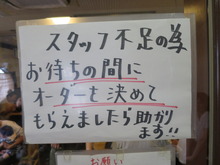 スタッフ不足の為
お待ちの間に
オーダーを決めて
もらえましたら助かり
ます!!
お願い